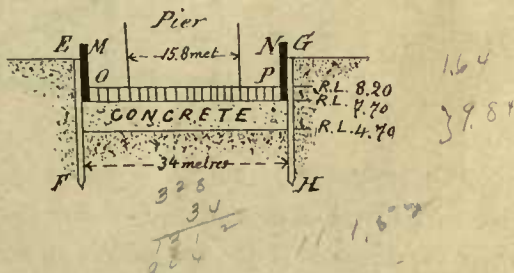 Pier
E M N G
15.8 met
O P
R.L. 8.20
R.L. 7.70
CONCRETE
R.L. 4.70
34 metres
F H
1.64
328